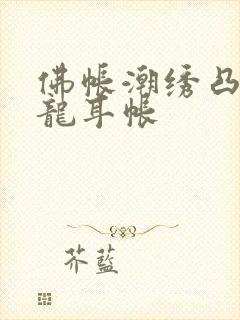 佛帐潮绣凸
龍耳帐
芥藍